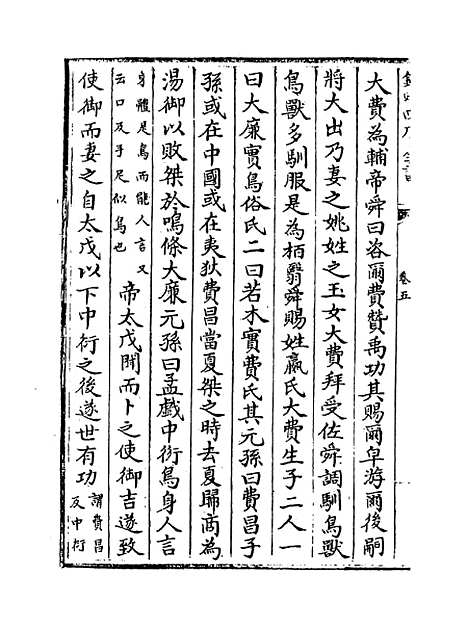 卷五
大費為輔帝舜曰咨爾費贊禹功其賜爾皁游爾後嗣
將大出乃妻之姚姓之玉女大費拜受佐舜調馴鳥獸
鳥獸多馴服是為栢翳舜賜姓嬴氏大費生子二人一
曰大廉實鳥俗氏二曰若木實費氏其元孫曰費昌子
孫或在中國或在夷狄費昌當夏桀之時去夏歸商為
湯御以敗桀於鳴條大廉元孫曰孟戲中衍鳥身人言
身體是鳥而能人言又
云口及手足似鳥也
帝太戊聞而卜之使御吉遂致
使御而妻之自太戊以下中衍之後遂世有功
謂費昌
及中衍